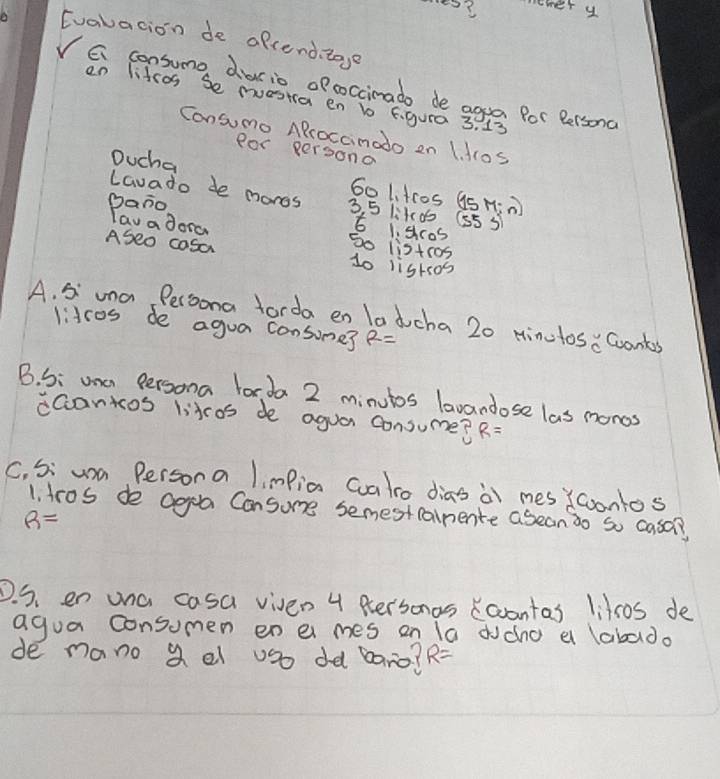 mer y
Evaluación de aprendizaje
El consumo diario aproccimado de agua Por Persona
en litros se muestra en la figura 3.13
Consumo Aproccimado en litros
Por persona
Ducha 60 litros (15 Min)
Lavado de manos 3,5 litros (55 s)
Baño 6 listros
lavadora 50 listros
Aseo casa 10 listros
A. Si una Persona tarda en la ducha 20 minutos ¿Cuantos
litros de agua consume? R=
B. Si una Persona tarda 2 minutos lavandose las manos
¿Cuantos litros de agua consume? R=
C. Si una Persona limpia cuatro dias al mes ¿Cuantos
litros de agua Consume semestralmente aseando su casa?
R=
D. Si en una casa viven 4 Personas ¿Cuantas litros de
agua consumen en el mes en la ducha el labado
de mano y el uso del baño? R=